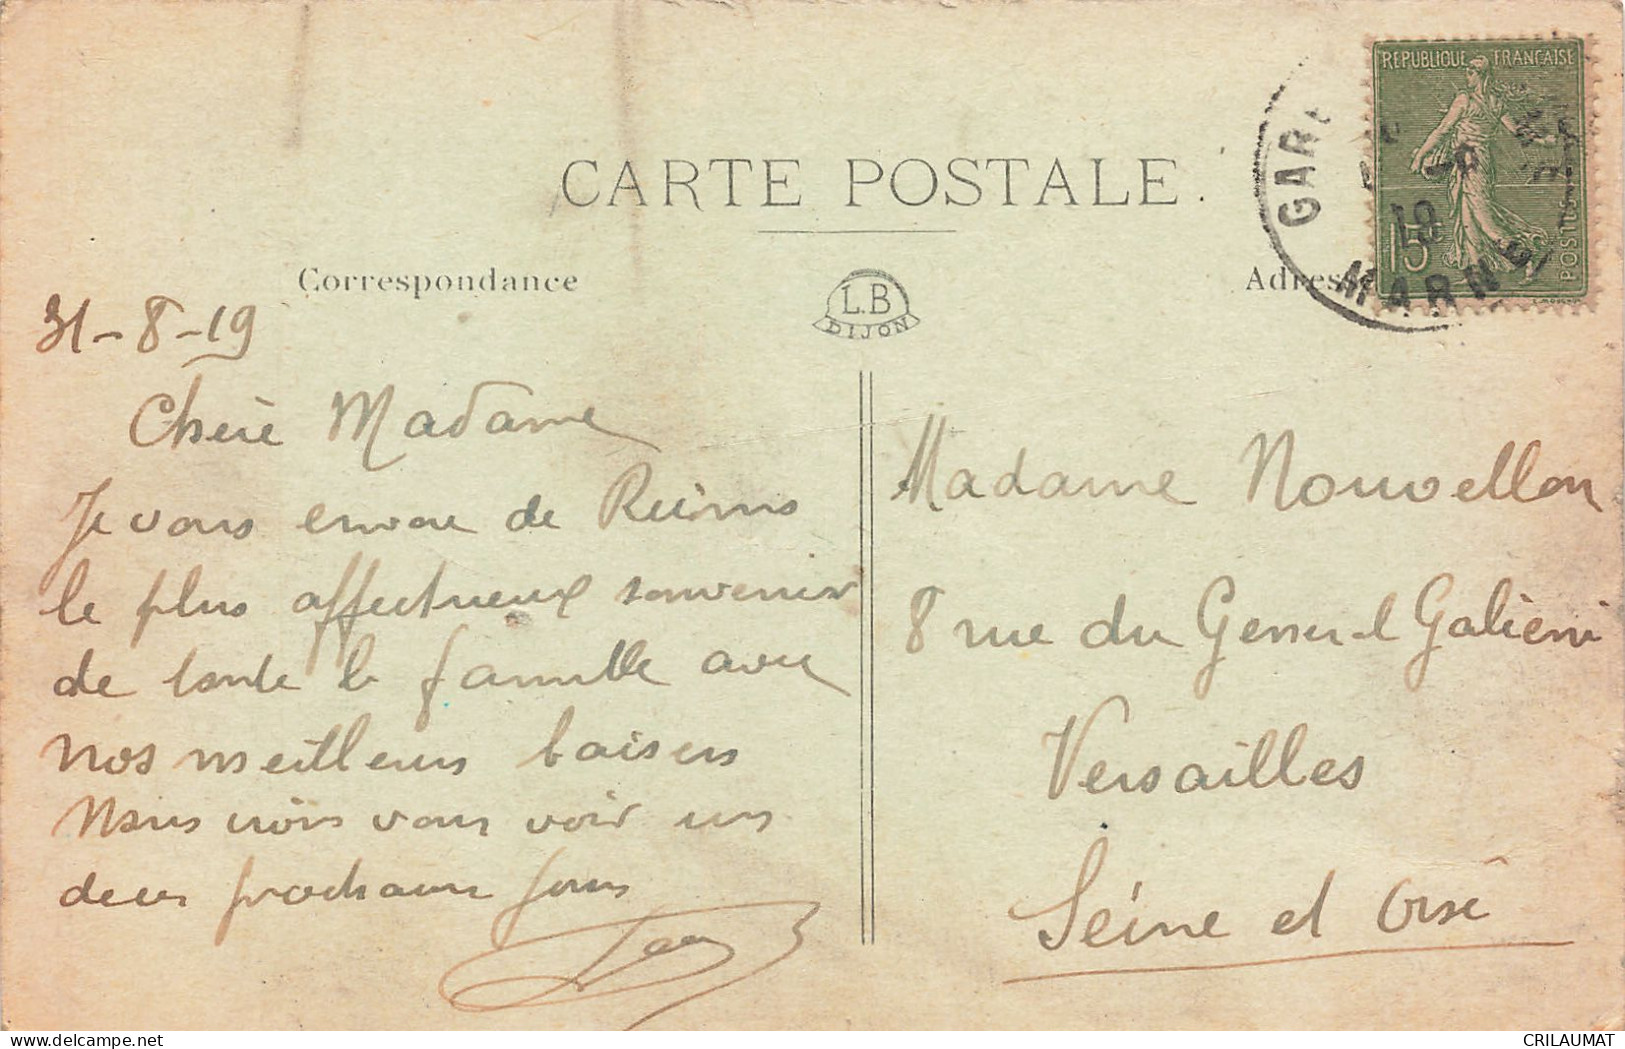 CARTE POSTALE.
Correspondance
Adresse
L.B
DIJON
REPUBLIQUE FRANCAISE
15
POSTES
GARE
19
MARNE
31-8-19
Chère Madame
Je vous envoie de Reims
le plus affectueux souvenir
de toute la famille avec
nos meilleurs baisers
Nous irons vous voir un
deces prochains jours
Madame Nouvellon
8 rue du General Galiéni
Versailles
Séine et Oise
CRILAUMAT